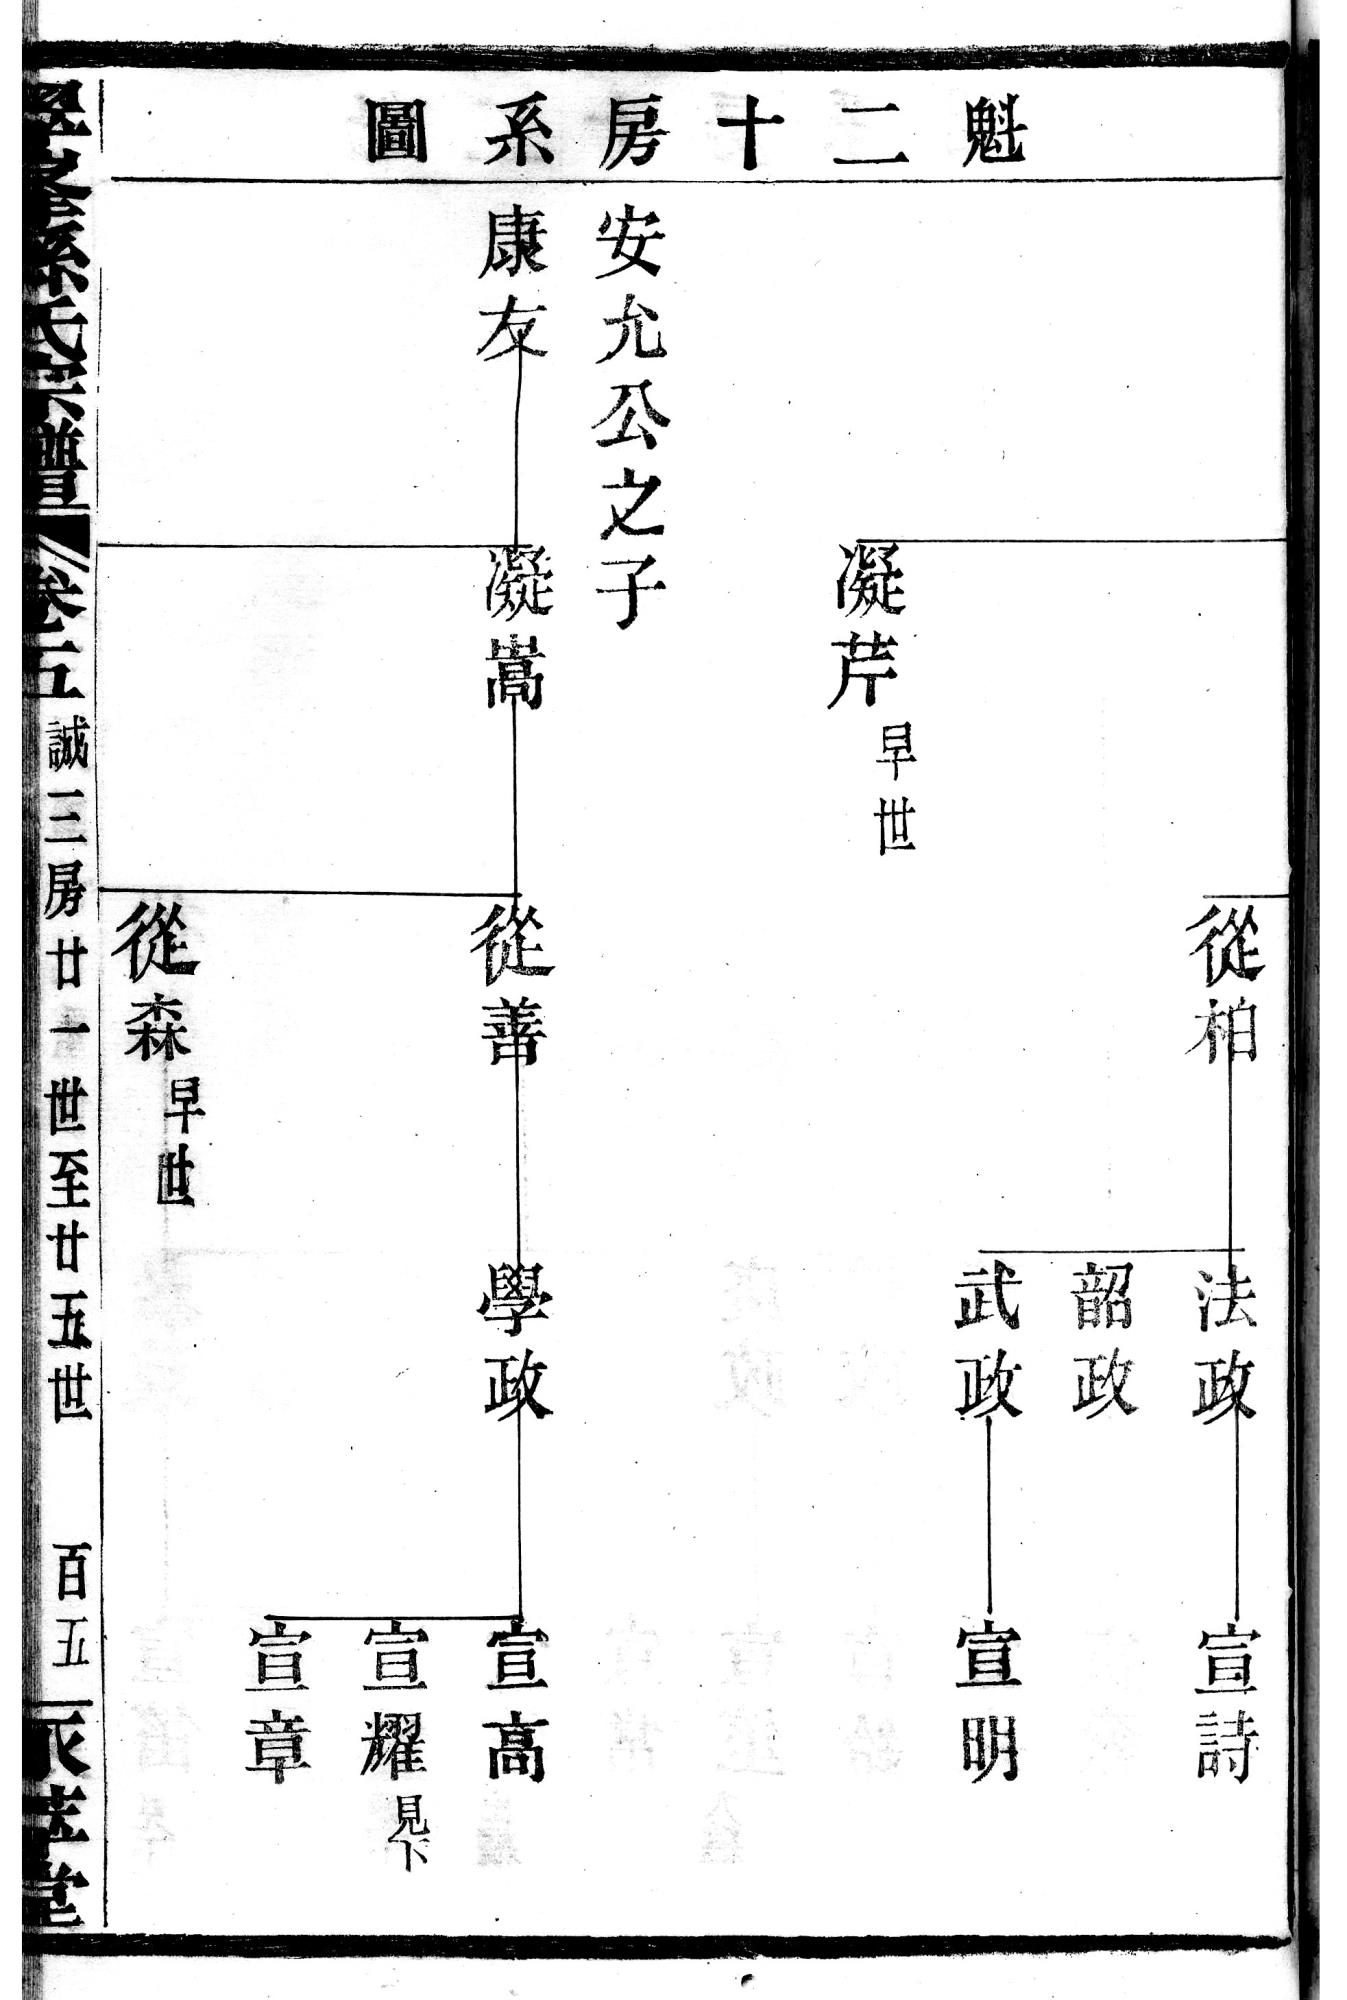 魁二十房系圖
從柏
法政
宣詩
韶政
武政
宣明
凝芹 早世
安允公之子
康友
凝嵩
從善
學政
宣高
宣耀 見下
宣章
從森 早世
孫氏宗譜
卷五
誠三房廿一世至廿五世
百五
堂